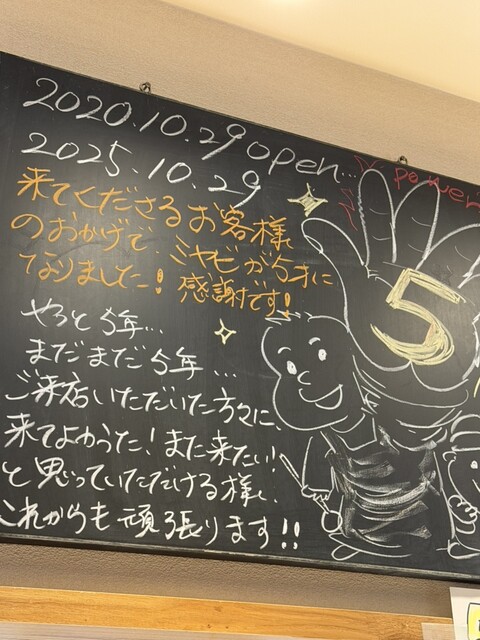 2020.10.29 open...
2025.10.29
power
来てくださるお客様
のおかげで、ミヤビが5才に
なりました! 感謝です!
5
やっと5年...
まだまだ5年...
ご来店いただいた方々に、
来てよかった!また来たい!
と思っていただける様に、
これからも頑張ります!!